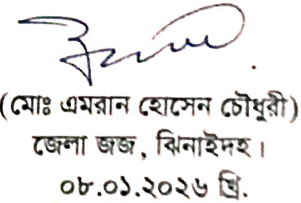 (মোঃ এমরান হোসেন চৌধুরী)
জেলা জজ, ঝিনাইদহ।
০৮.০১.২০২৬ খ্রি.